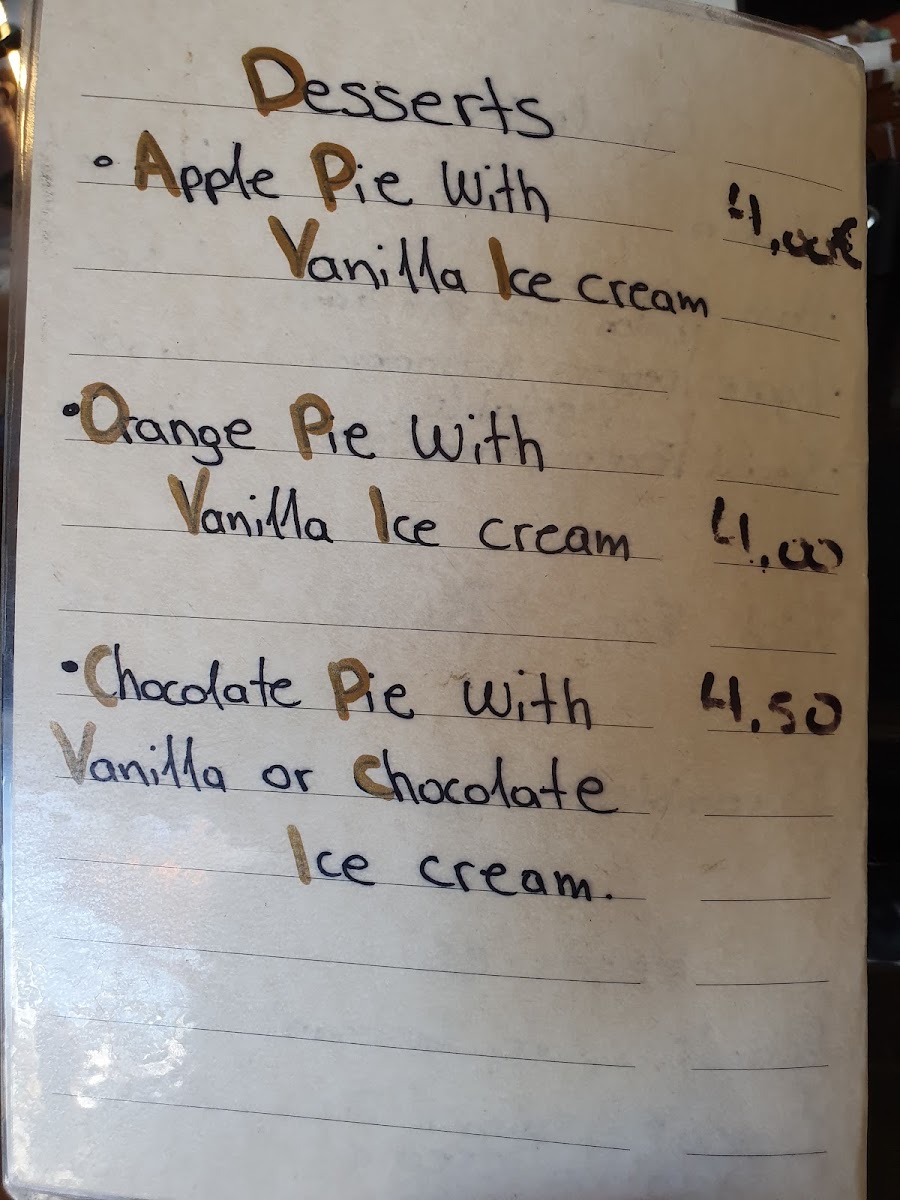 Desserts
• Apple Pie With
Vanilla Ice cream 4,00€
• Orange Pie With
Vanilla Ice cream 4,00
• Chocolate Pie with 4,50
Vanilla or Chocolate
Ice cream.